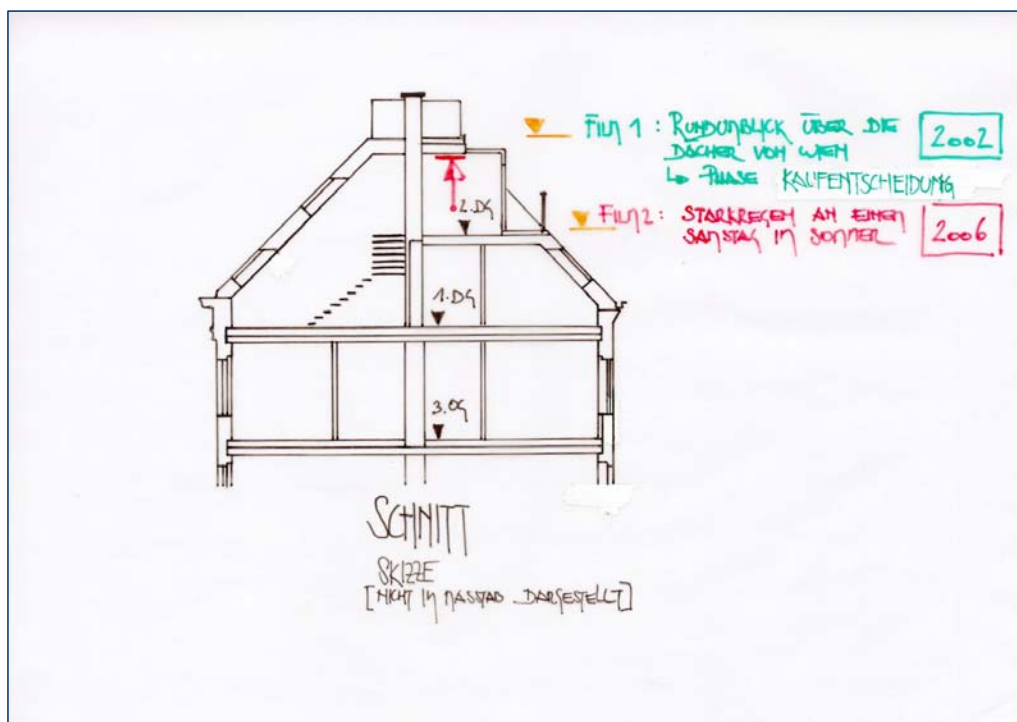 FILM 1 : RUNDUMBLICK ÜBER DIE 2002
DÄCHER VON WIEN
↳ PHASE KAUFENTSCHEIDUNG
2.DG
FILM 2 : STARKREGEN AN EINEM 2006
SAMSTAG IM SOMMER
1.DG
3.OG
SCHNITT
SKIZZE
[NICHT IM MASSTAB DARGESTELLT]